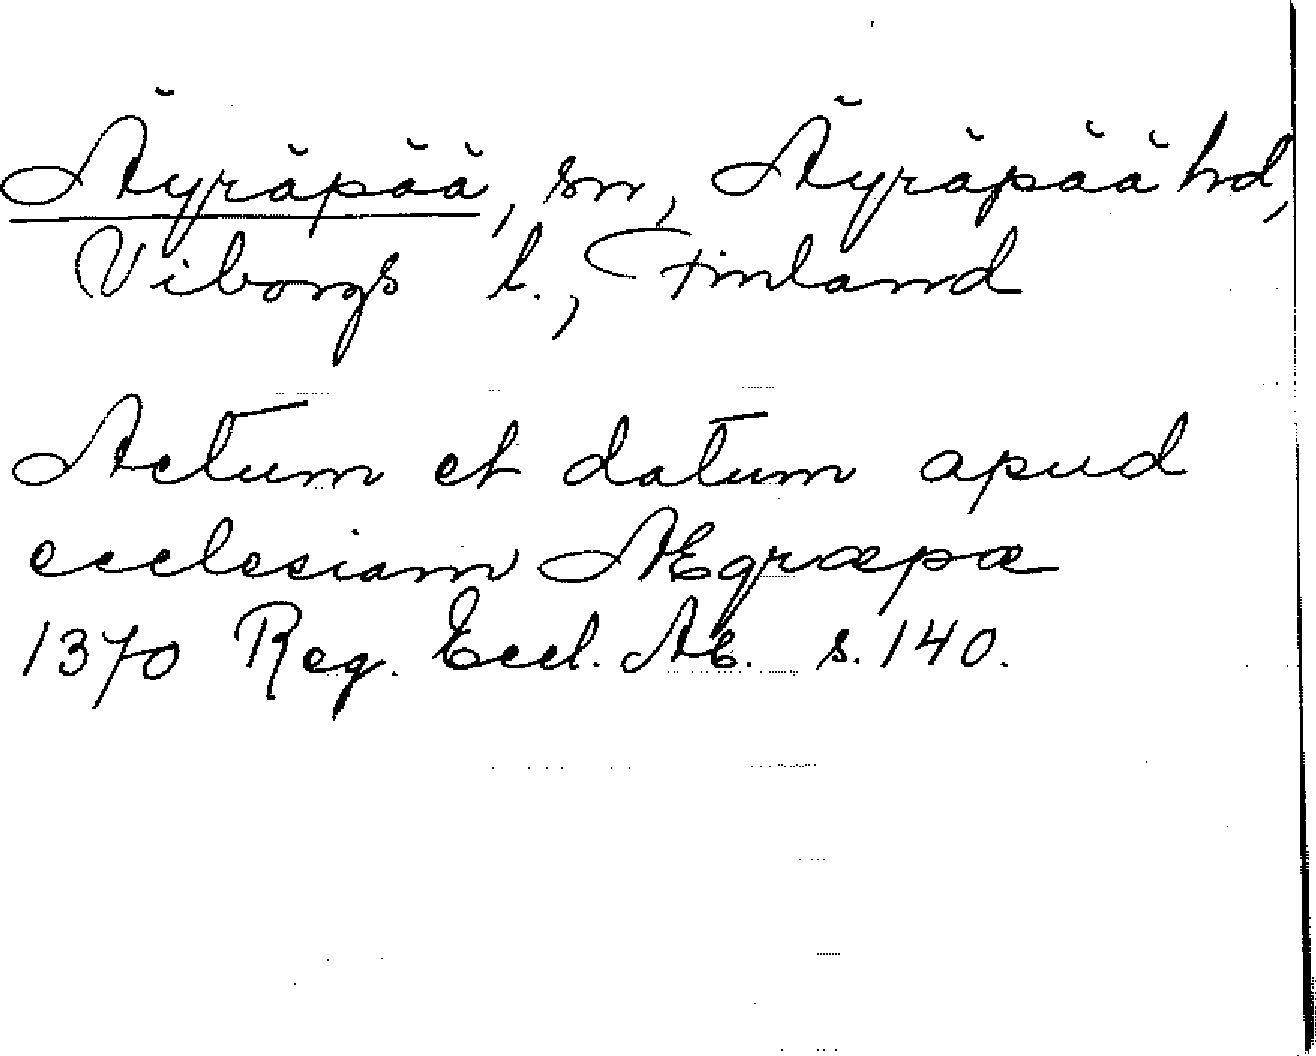 Äyräpää, sn, Äyräpää hd,
Viborgs l., Finland
Actum et datum apud
ecclesiam Ægræpæ
1370 Reg. Eccl. Ab. s. 140.